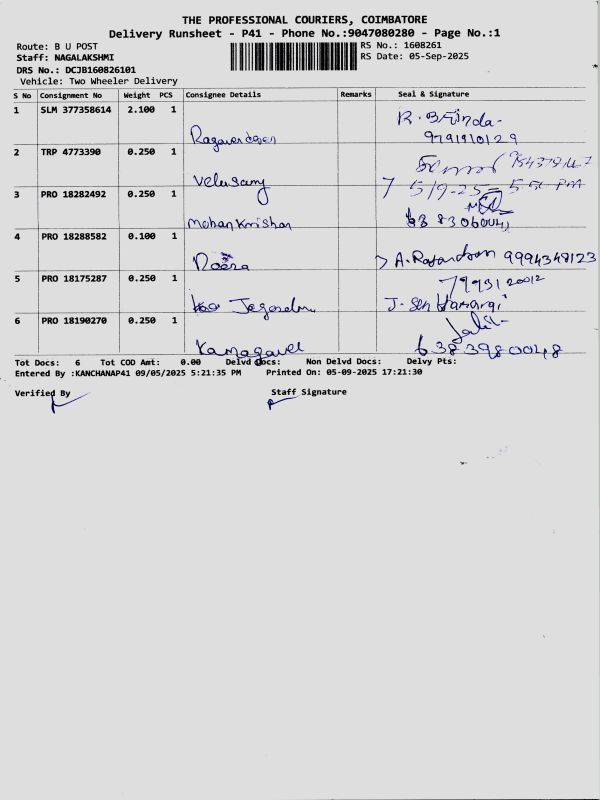 THE PROFESSIONAL COURIERS, COIMBATORE
Delivery Runsheet - P41 - Phone No.:9047080280 - Page No.:1
Route: B U POST RS No.: 1608261
Staff: NAGALAKSHMI RS Date: 05-Sep-2025
DRS No.: DCJB160826101
Vehicle: Two Wheeler Delivery
S No Consignment No Weight PCS Consignee Details Remarks Seal & Signature
1 SLM 377358614 2.100 1 R. Brinda
9791910129
2 TRP 4773390 0.250 1
Velusamy 5/9-25 5:50 PM
3 PRO 18282492 0.250 1
Mohan Krishan
4 PRO 18288582 0.100 1
A. Rajandran 9994348123
5 PRO 18175287 0.250 1
6 PRO 18190270 0.250 1
6383980048
Tot Docs: 6 Tot COD Amt: 0.00 Delvd Docs: Non Delvd Docs: Delvy Pts:
Entered By :KANCHANAP41 09/05/2025 5:21:35 PM Printed On: 05-09-2025 17:21:30
Verified By Staff Signature